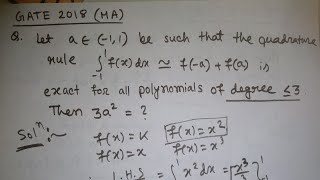 GATE 2018 (MA)
Q. Let a ∈ (-1,1) be such that the quadrature
rule ∫₋₁¹ f(x)dx ≃ f(-a) + f(a) is
exact for all polynomials of degree ≤3
Then 3a² = ?
Solⁿ:~ f(x) = K f(x) = x²
f(x) = x f(x) = x³
L.H.S = ∫₋₁¹ x² dx = [x³/3]₋₁¹